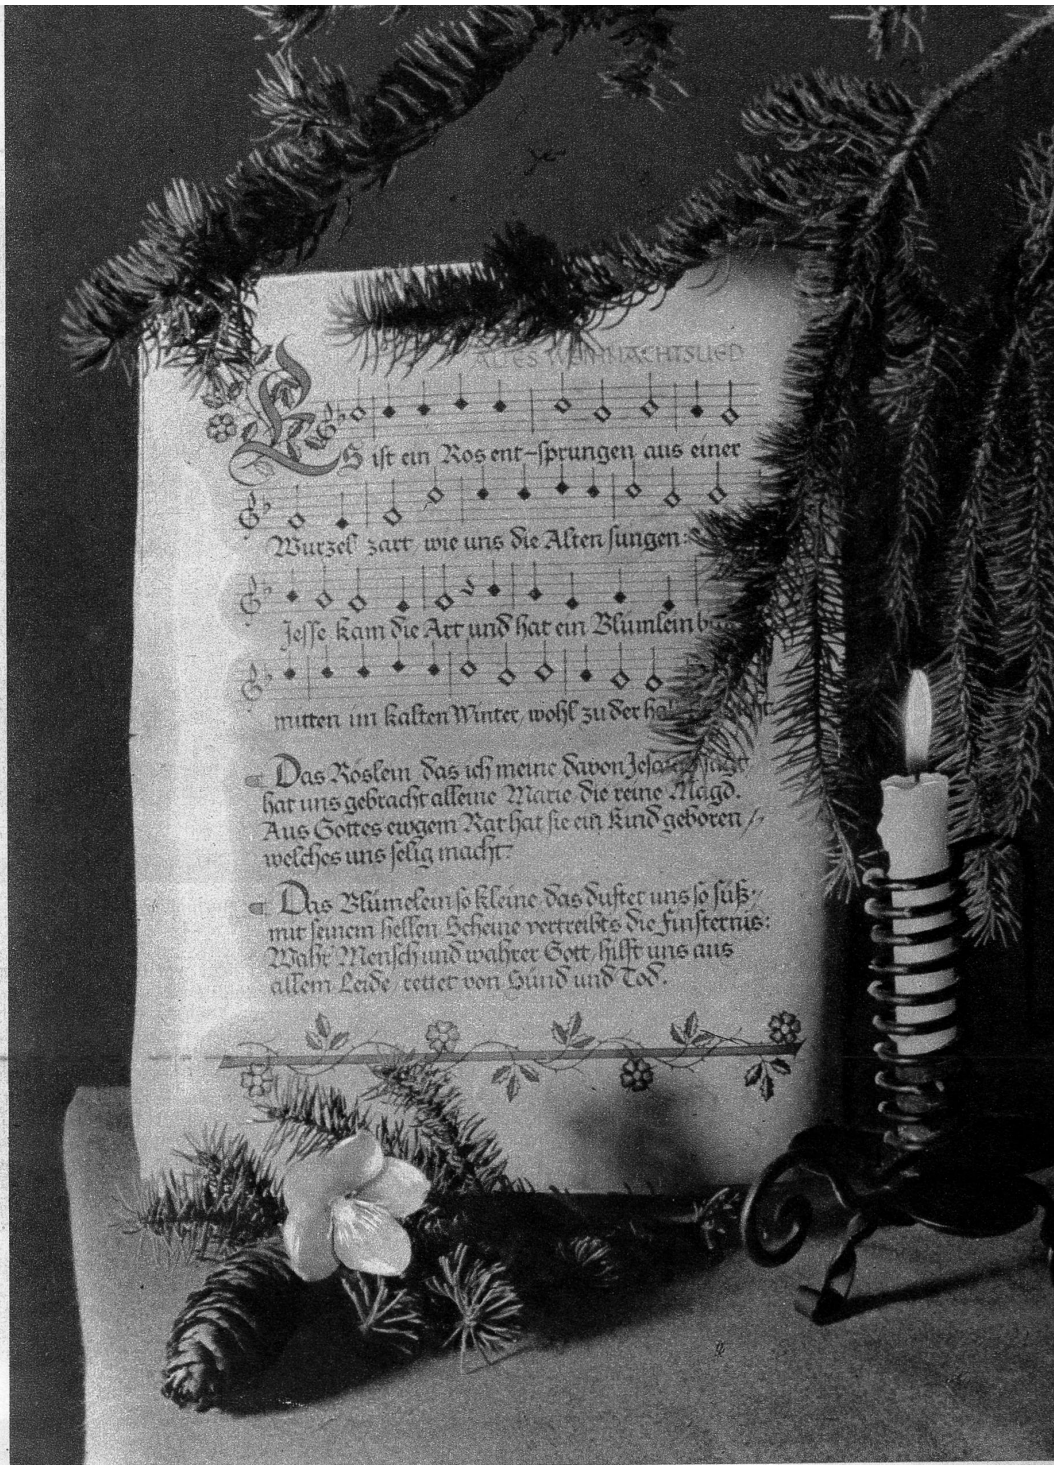 ALTES WEIHNACHTSLIED
ES ist ein Ros ent-sprungen aus einer
Wurzel zart, wie uns die Alten sungen:
Jesse kam die Art und hat ein Blümlein
mitten im kalten Winter, wohl zu der
Das Röslein das ich meine davon Jesaia sagt
hat uns gebracht alleine Marie die reine Magd.
Aus Gottes ewgem Rat hat sie ein Kind geboren
welches uns selig macht.
Das Blümelein so kleine, das duftet uns so süß,
mit seinem hellen Scheine vertreibts die Finsternis:
Wahr' Mensch und wahrer Gott, hilft uns aus
allem Leide, rettet von Sünd und Tod.